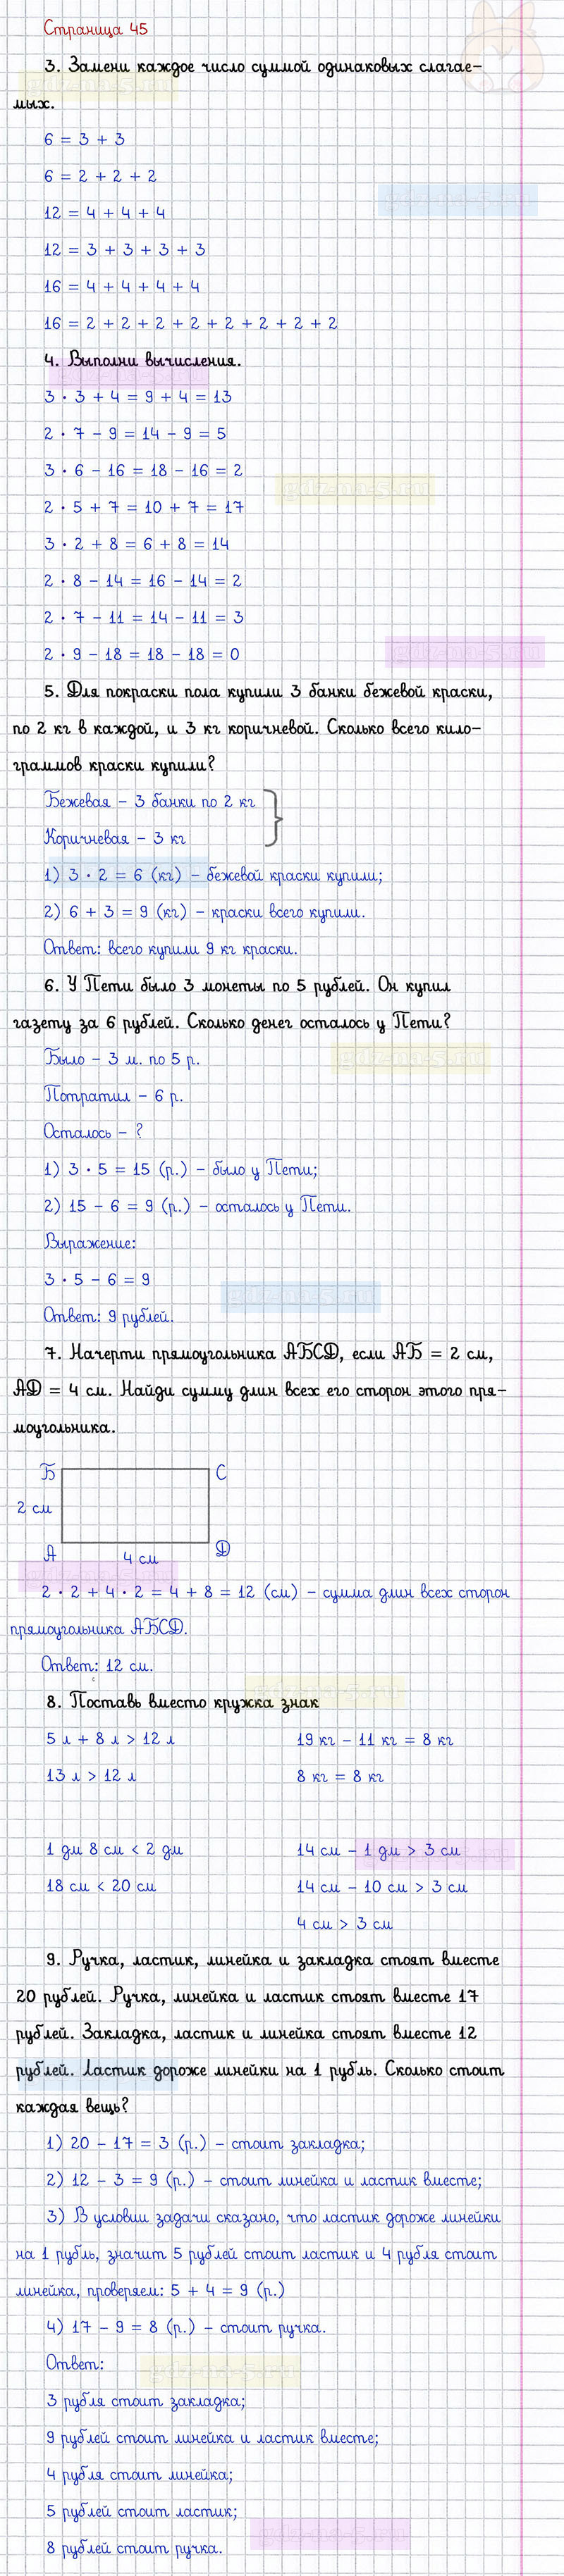 Страница 45
3. Замени каждое число суммой одинаковых слагае-
мых.
6 = 3 + 3
6 = 2 + 2 + 2
12 = 4 + 4 + 4
12 = 3 + 3 + 3 + 3
16 = 4 + 4 + 4 + 4
16 = 2 + 2 + 2 + 2 + 2 + 2 + 2 + 2
4. Выполни вычисления.
3 · 3 + 4 = 9 + 4 = 13
2 · 7 - 9 = 14 - 9 = 5
3 · 6 - 16 = 18 - 16 = 2
gdz-na-5.ru
2 · 5 + 7 = 10 + 7 = 17
3 · 2 + 8 = 6 + 8 = 14
2 · 8 - 14 = 16 - 14 = 2
2 · 7 - 11 = 14 - 11 = 3
2 · 9 - 18 = 18 - 18 = 0
5. Для покраски пола купили 3 банки бежевой краски,
по 2 кг в каждой, и 3 кг коричневой. Сколько всего кило-
граммов краски купили?
Бежевая - 3 банки по 2 кг
Коричневая - 3 кг
1) 3 · 2 = 6 (кг) - бежевой краски купили;
2) 6 + 3 = 9 (кг) - краски всего купили.
Ответ: всего купили 9 кг краски.
6. У Пети было 3 монеты по 5 рублей. Он купил
газету за 6 рублей. Сколько денег осталось у Пети?
Было - 3 м. по 5 р.
Потратил - 6 р.
Осталось - ?
1) 3 · 5 = 15 (р.) - было у Пети;
2) 15 - 6 = 9 (р.) - осталось у Пети.
Выражение:
3 · 5 - 6 = 9
Ответ: 9 рублей.
7. Начерти прямоугольника АБСД, если АБ = 2 см,
АД = 4 см. Найди сумму длин всех его сторон этого пря-
моугольника.
Б С
2 см
А 4 см Д
2 · 2 + 4 · 2 = 4 + 8 = 12 (см) - сумма длин всех сторон
прямоугольника АБСД.
Ответ: 12 см.
8. Поставь вместо кружка знак
5 л + 8 л > 12 л 19 кг - 11 кг = 8 кг
13 л > 12 л 8 кг = 8 кг
1 дм 8 см < 2 дм 14 см - 1 дм > 3 см
18 см < 20 см 14 см - 10 см > 3 см
4 см > 3 см
9. Ручка, ластик, линейка и закладка стоят вместе
20 рублей. Ручка, линейка и ластик стоят вместе 17
рублей. Закладка, ластик и линейка стоят вместе 12
рублей. Ластик дороже линейки на 1 рубль. Сколько стоит
каждая вещь?
1) 20 - 17 = 3 (р.) - стоит закладка;
2) 12 - 3 = 9 (р.) - стоит линейка и ластик вместе;
3) В условии задачи сказано, что ластик дороже линейки
на 1 рубль, значит 5 рублей стоит ластик и 4 рубля стоит
линейка, проверяем: 5 + 4 = 9 (р.)
4) 17 - 9 = 8 (р.) - стоит ручка.
Ответ:
3 рубля стоит закладка;
9 рублей стоит линейка и ластик вместе;
4 рубля стоит линейка;
5 рублей стоит ластик;
8 рублей стоит ручка.